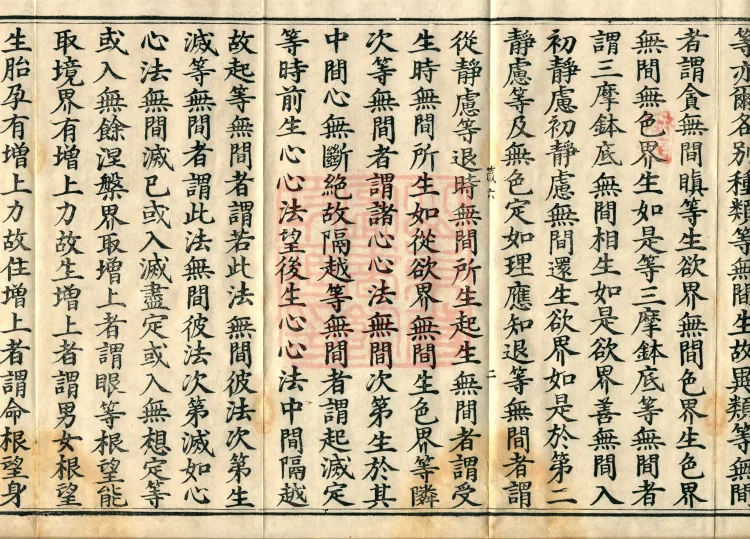 等亦爾各別種類等無間生故異類等無間
者謂貪無間瞋等生欲界無間色界生色界
無間無色界生如是等三摩鉢底等無間者
謂三摩鉢底無間相生如是欲界善無間入
初靜慮初靜慮無間還生欲界如是於第二
靜慮等及無色定如理應知退等無間者謂
從靜慮等退時無間所生起生無間者謂受
生時無間所生如從欲界無間生色界等隣
次等無間者謂諸心心法無間次第生於其
中間心無斷絕故隔越等無間者謂起滅定
等時前生心心法望後生心心法中間隔越
故起等無間者謂若此法無間彼法次第生
滅等無間者謂此法無間彼法次第滅如心
心法無間滅已或入滅盡定或入無想定等
或入無餘涅槃界取增上者謂眼等根望能
取境界有增上力故生增上者謂男女根望
生胎孕有增上力故住增上者謂命根望身